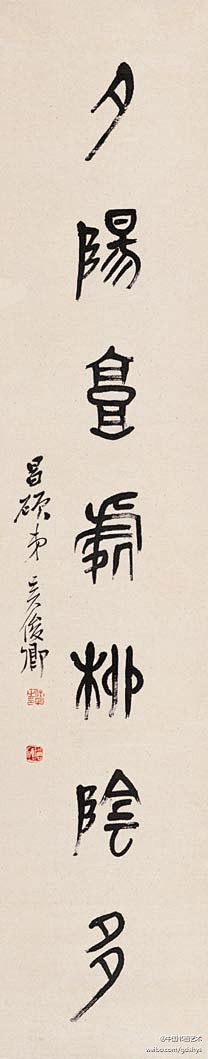 夕陽處柳陰多
昌碩弟吳俊卿
@中国书画艺术
weibo.com/gdshys